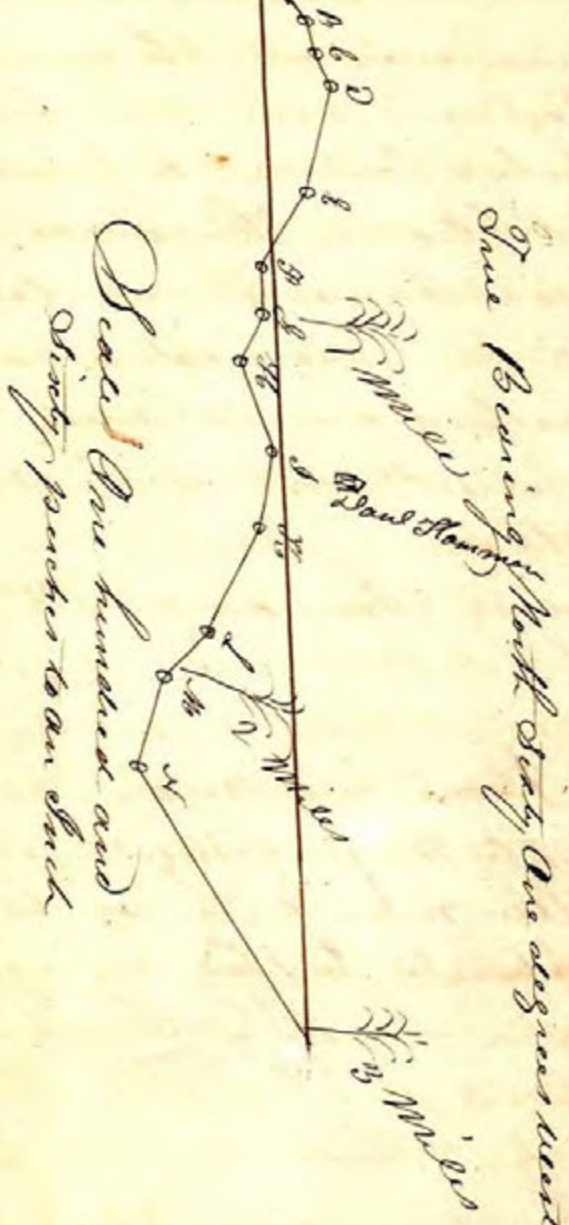 True Bearing North Sixty One degrees west
B
C
D
E
F
G
H
I
K
L
M
N
1 Miles
2 Miles
3 Miles
Scale One hundred and
Sixty perches to an Inch